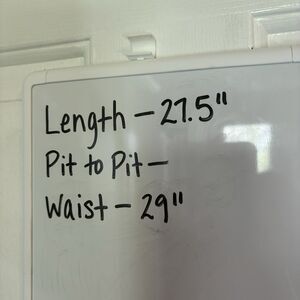 Length – 27.5"
Pit to Pit –
Waist – 29"